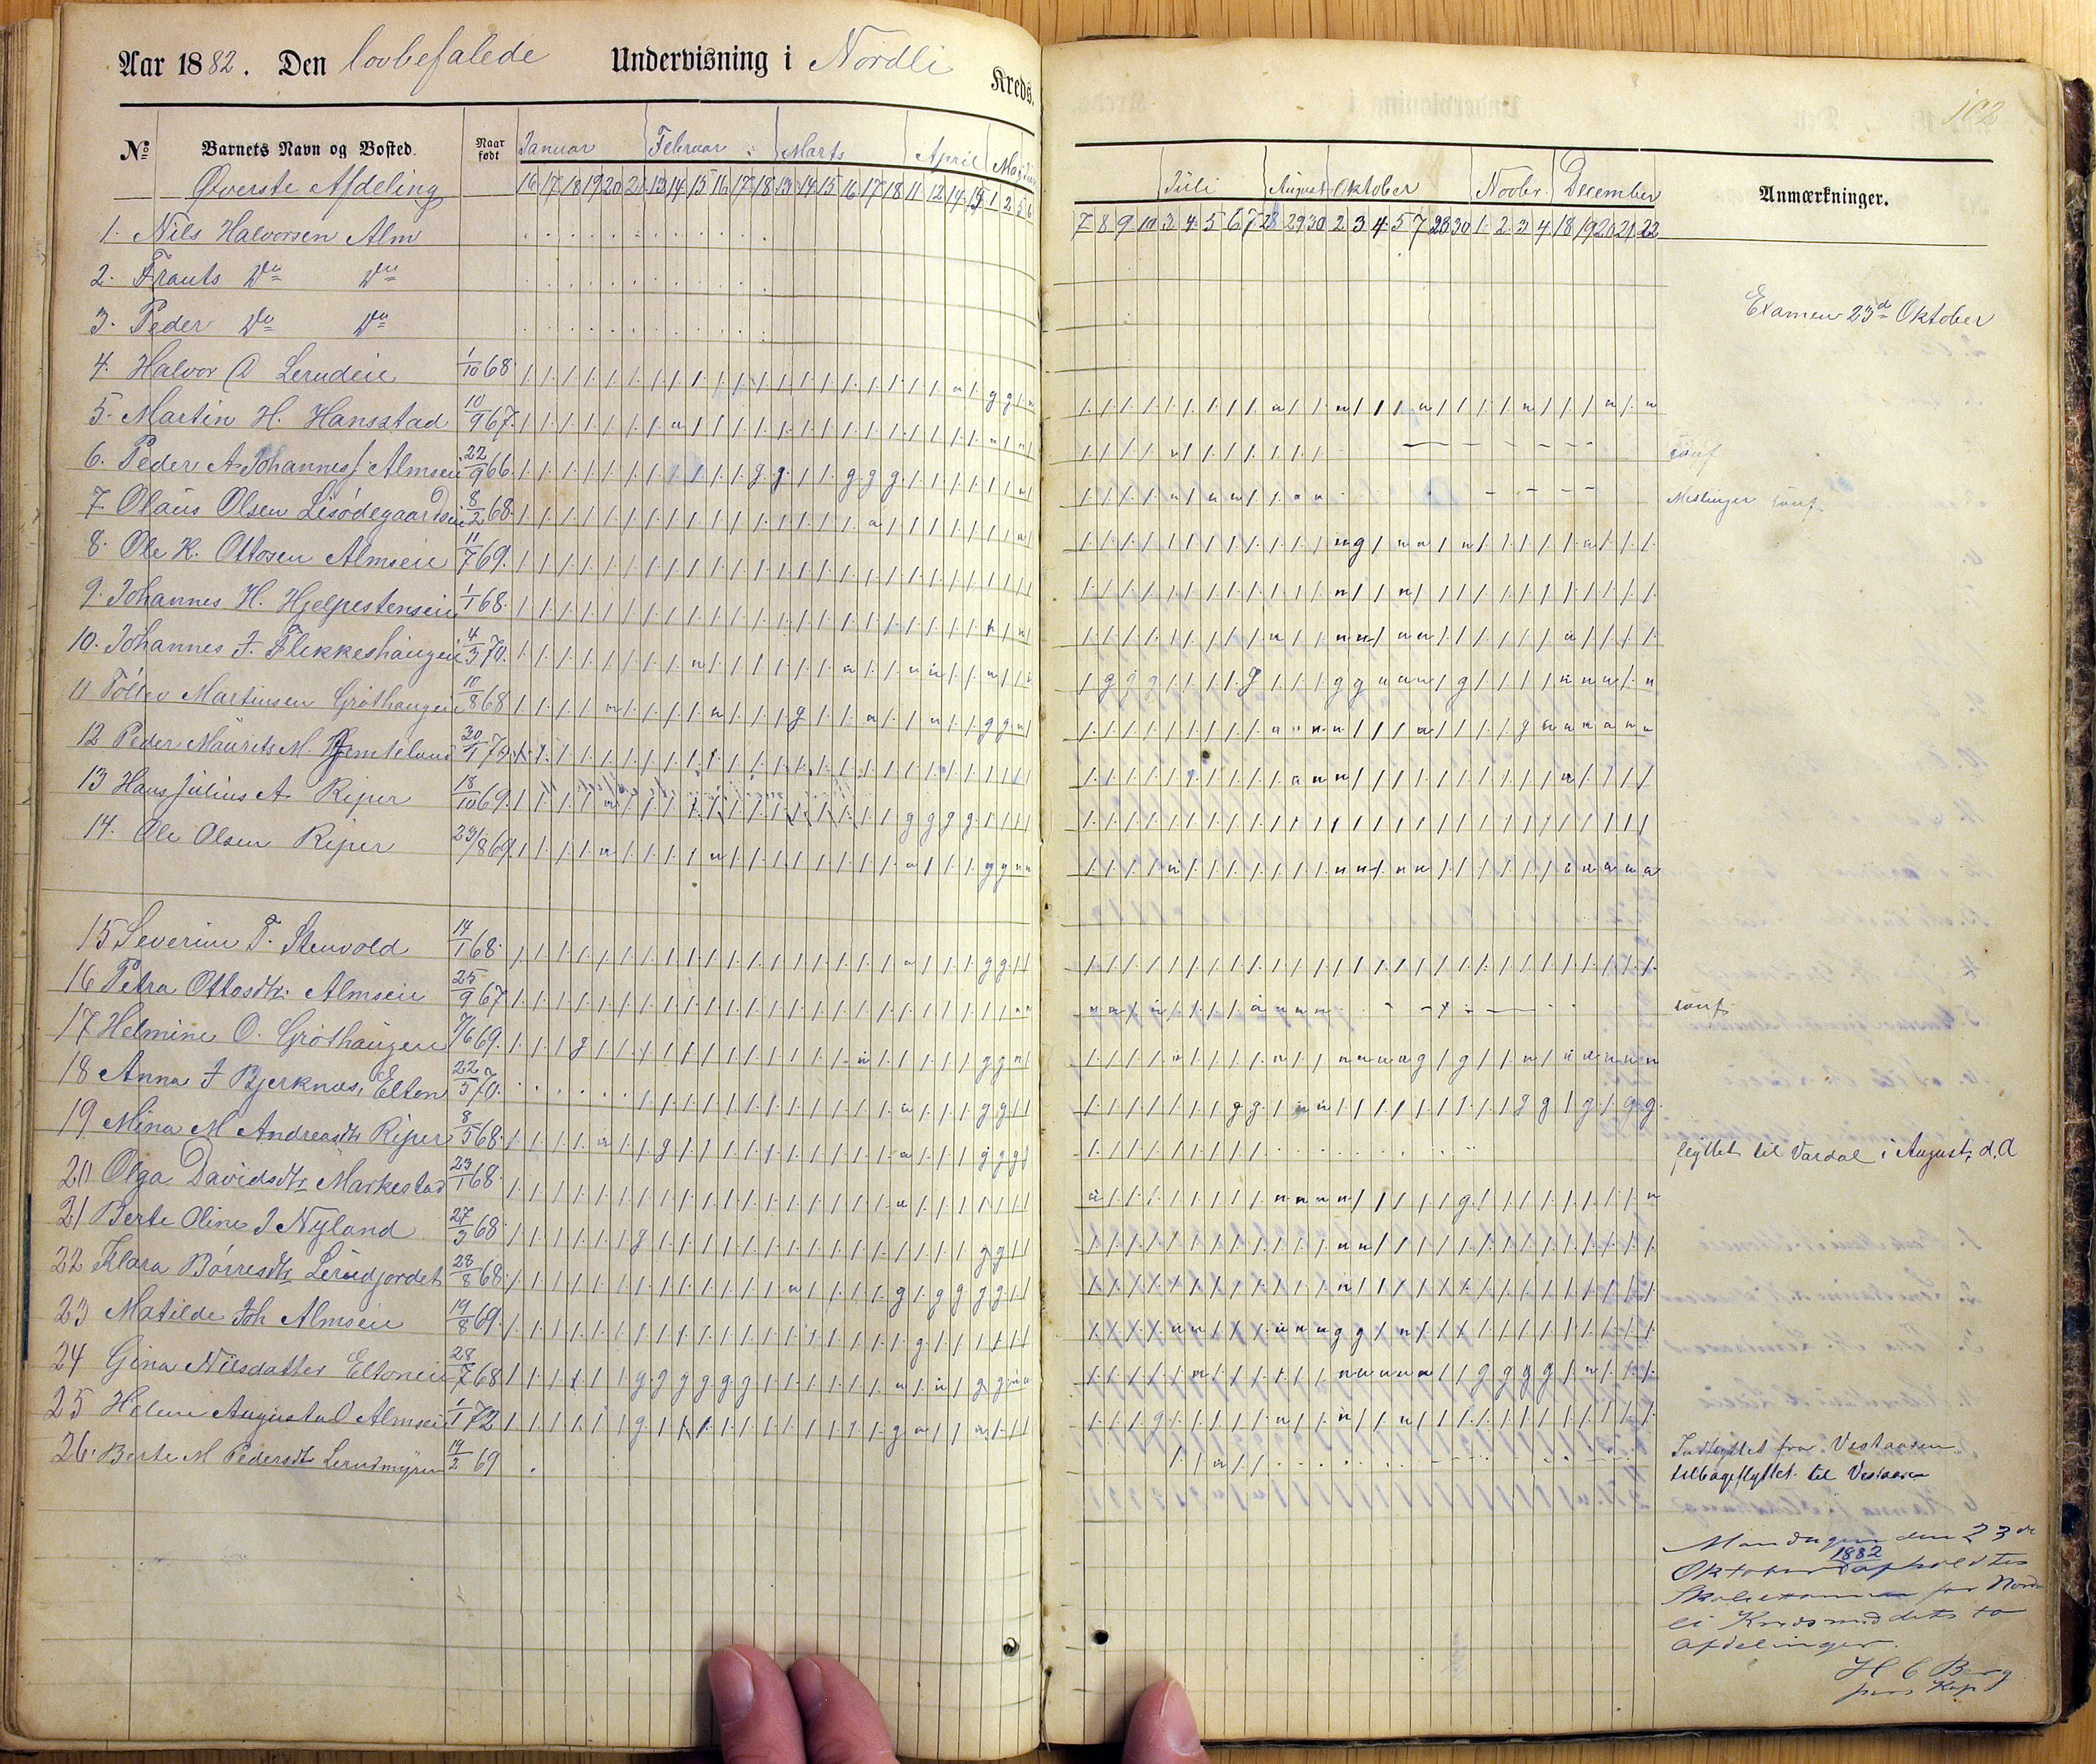 Aar 1882. Den lovbefalede Undervisning i Nordli Kreds.
No Barnets Navn og Bosted. Naar født Januar Februar Marts April Mai
Øverste Afdeling 16 17 18 19 20 21 13 14 15 16 17 18 13 14 15 16 17 18 11 12 14 15 1 2 5 6
1. Nils Halvorsen Alm
2. Frants Do Do
3. Peder Do Do
4. Halvor A Lerudeie 1/10 68
5. Martin H. Hansstad 10/9 67.
6. Peder A. Johannes Almseie 22/9 66.
7 Olaus Olsen Lisødegaardseie 8/2 68.
8. Ole K. Ottosen Almseie 11/7 69.
9. Johannes H. Hjelpestenseie 1/1 68.
10. Johannes J. Flekkeshaugen 4/3 70.
11 Tollev Martinsen Grøthaugen 10/8 68
12 Peder Maurits M. Jemteland 30/1 70
13 Hans Julius A. Riper 18/10 69.
14. Ole Olsen Riper 23/8 69
15 Severine T. Stenvold 14/1 68.
16 Petra Ottosdtr. Almseie 25/9 67
17 Helmine O. Grøthaugen 7/6 69.
18 Anna J Bjerknæs, Elton 22/5 70.
19 Mina M Andreasdtr Riper 8/5 68.
20 Olga Davidsdtr Markestad 23/1 68.
21 Berte Oline J Nyland 27/3 68.
22 Klara Børresdtr Lerudjordet 28/8 68.
23 Matilde Joh Almseie 19/8 69.
24 Gina Nilsdatter Eltoneie 28/7 68
25 Helene Augusta O Almseie 1/1 72
26. Berte M Pedersdtr Lerudmyren 14/2 69
102
Juli August Oktober Novbr. December Anmærkninger.
7 8 9 10 3 4 5 6 7 28 29 30 2 3 4 5 7 28 30 1 2 3 4 18 19 20 21 22
Examen 23d Oktober
konf
konf
konf
flyttet til Vardal i August d. A
Indflyttet fra Vestaasen
tilbageflyttet til Vestaasen
Mandagen den 23de
Oktober 1882 afholdtes
Skoleexamen for Nord-
li Kreds med dets to
Afdelinger.
H C Berg
pers Kap